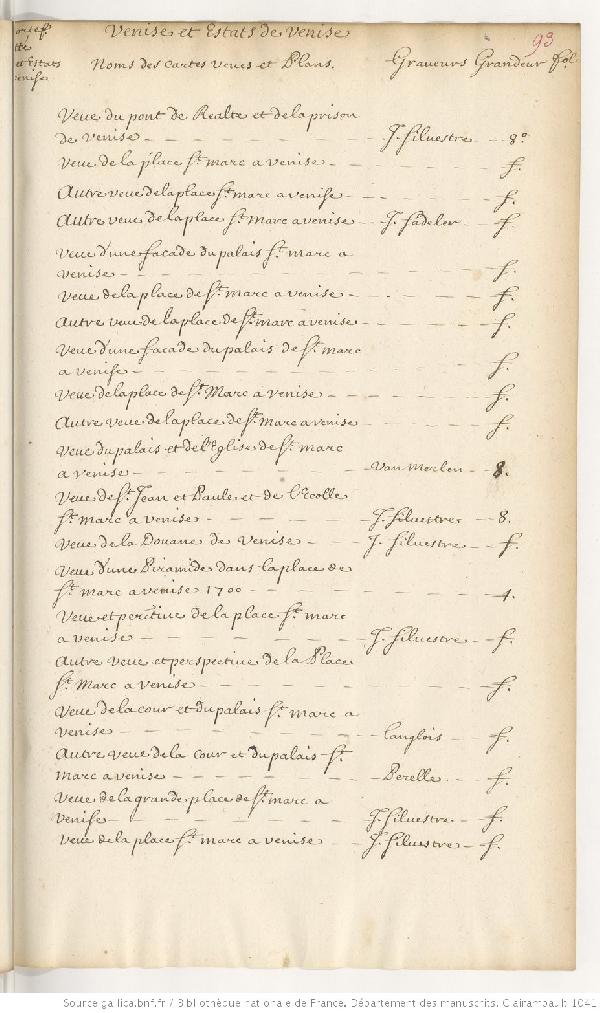 Venise et Estats de Venise
93
et Estats
venise
Noms des cartes veues et Plans. Graveurs Grandeur fol.
Veue du pont de Realte et de la prison
de venise - - - J. Silvestre - - 8°
Veue de la place St. marc a venise - - - f.
Autre veue de la place St. marc a venise - - - f.
Autre veue de la place St. Marc a venise - - J. Sadeler - - f.
Veue d'une facade du palais St. marc a
venise - - - f.
Veue de la place de St. marc a venise - - - f.
Autre veue de la place de St. marc a venise - - - f.
Veue d'une facade du palais de St. marc
a venise - - - f.
Veue de la place de St. Marc a venise - - - f.
Autre veue de la place de St. marc a venise - - - f.
Veue du palais et de l'Eglise de St. marc
a venise - - - Van Merlen - - 8.
Veue de St. Jean et Paule et de l'Ecolle
St. marc a venise - - - J. Silvestre - - 8.
Veue de la Douane de Venise - - J. Silvestre - - f.
Veue d'une Piramide dans la place de
St. marc a venise 1700 - - - 4.
Veue et perctive de la place St. marc
a venise - - - J. Silvestre - - f.
Autre veue et perspective de la Place
St. Marc a venise - - - f.
Veue de la cour et du palais St. marc a
venise - - - Langlois - - f.
Autre veue de la cour et du palais St.
Marc a venise - - - Perelle - - f.
Veue de la grande place de St. marc a
venise - - - J. Silvestre - - f.
Veue de la place St. marc a venise - - J. Silvestre - - f.
Source gallica.bnf.fr / Bibliothèque nationale de France. Département des manuscrits. Clairambault 1041